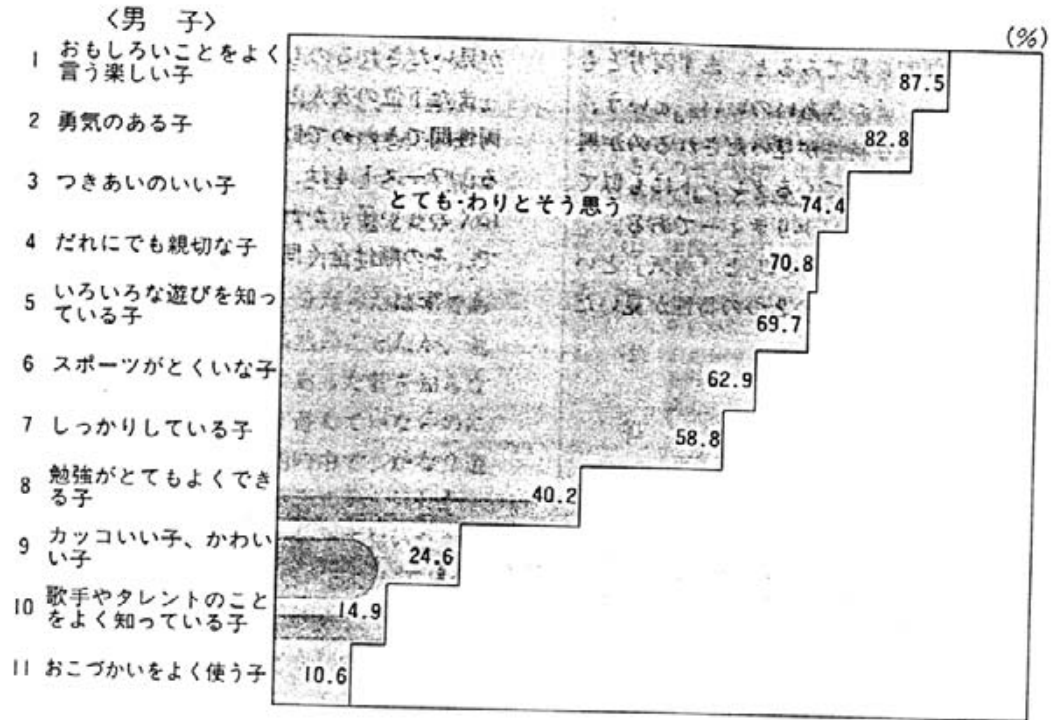 〈男 子〉
(%)
1 おもしろいことをよく
言う楽しい子
87.5
2 勇気のある子
82.8
3 つきあいのいい子
74.4
とても・わりとそう思う
4 だれにでも親切な子
70.8
5 いろいろな遊びを知っ
ている子
69.7
6 スポーツがとくいな子
62.9
7 しっかりしている子
58.8
8 勉強がとてもよくでき
る子
40.2
9 カッコいい子、かわい
い子
24.6
10 歌手やタレントのこと
をよく知っている子
14.9
11 おこづかいをよく使う子
10.6